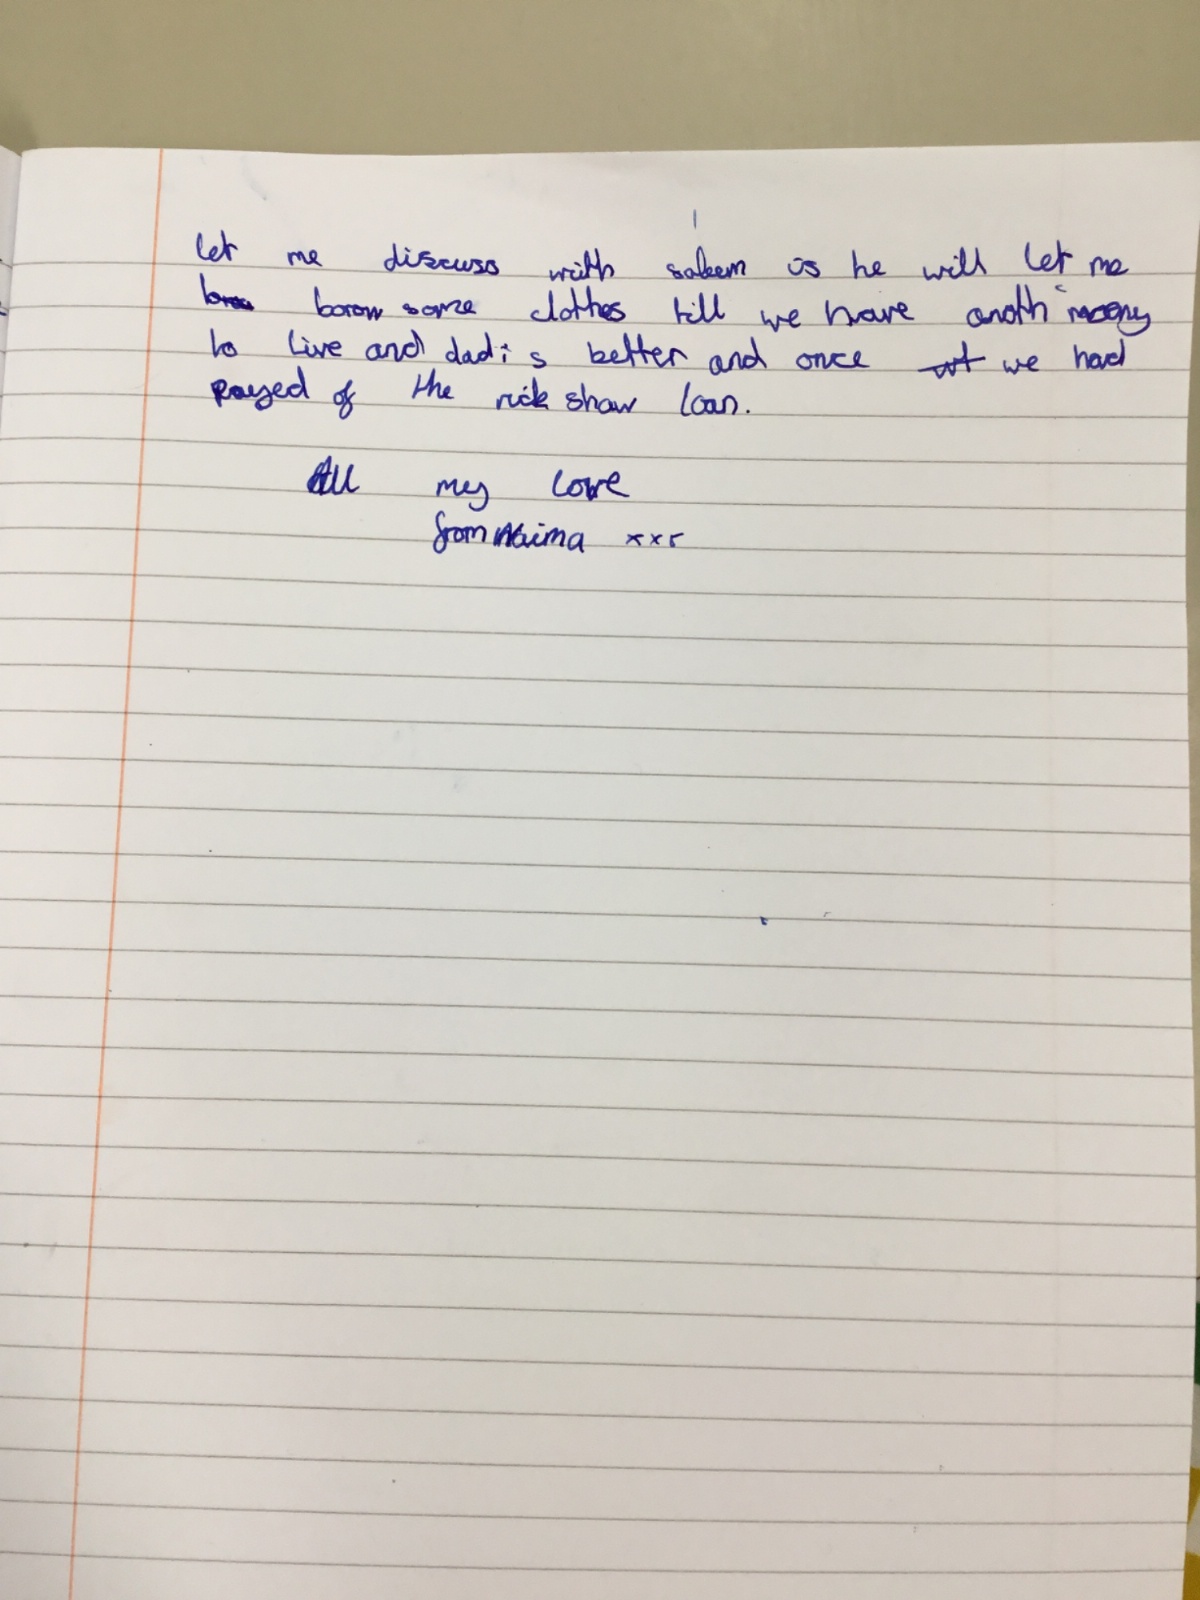 let me discuss with saleem is he will let me
borow some clothes till we have anoth moeny
to live and dad is better and once we had
payed of the rick shaw loan.
All my love
from Naima xxx